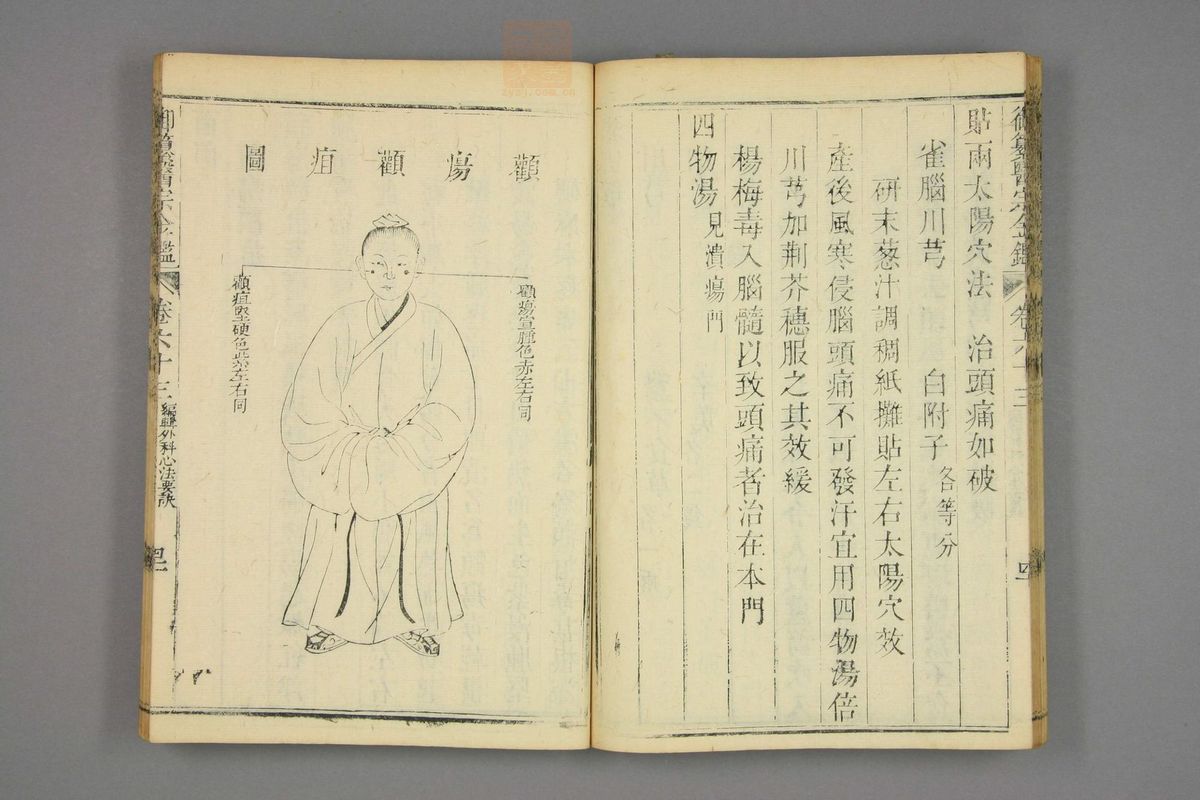 貼兩太陽穴法　治頭痛如破
雀腦川芎　白附子各等分
研末葱汁調稠紙攤貼左右太陽穴效
產後風寒侵腦頭痛不可發汗宜用四物湯倍
川芎加荆芥穗服之其效緩
楊梅毒入腦髓以致頭痛者治在本門
四物湯見潰瘍門
卷六十三
顴瘍顴疽圖
顴瘍宣腫色赤左右同
顴疽堅硬色紫左右同
御纂醫宗金鑑
卷六十三
編輯外科心法要訣
zysj.com.cn